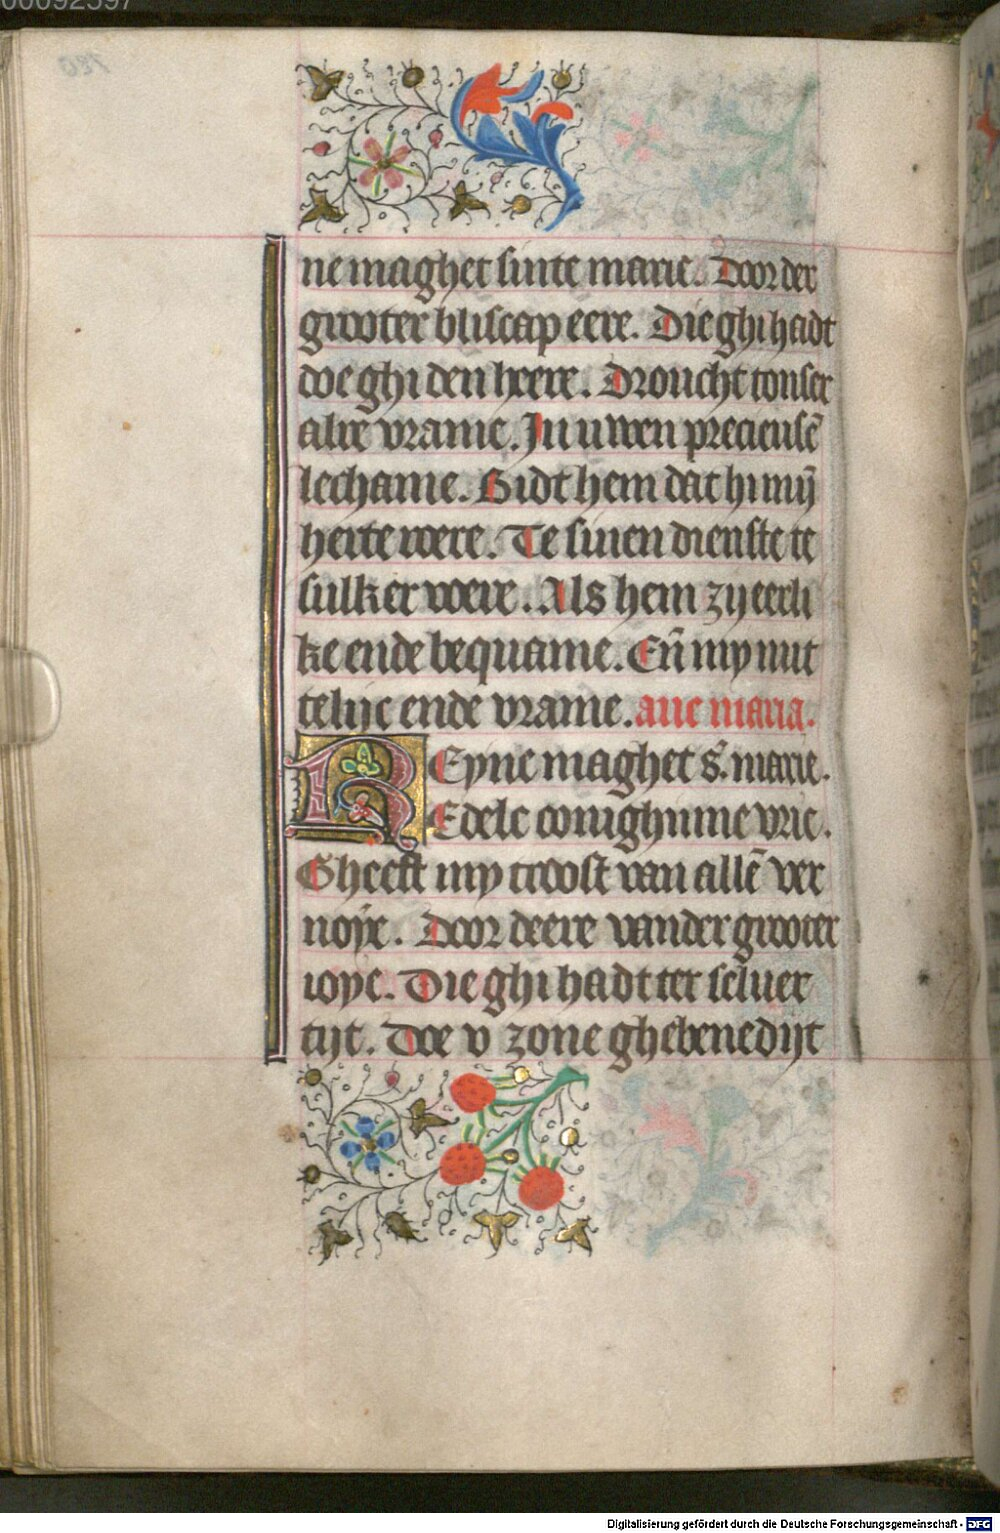 00092597
ne maghet sinte marie. Door der
grooter bliscap eere. Die ghi hadt
doe ghi den heere. Droucht tonser
alre vrame. In uwen precieusē
lechame. Bidt hem dat hi mij
herte were. Te sinen dienste te
sulker were. Als hem zij eerli
ke ende bequame. Eñ my nut
telijc ende vrame. aue maria.
REyne maghet s. marie.
Edele conighinne vrie.
Gheeft my troost van allē ver
noye. Door deere vander grooter
ioye. Die ghi hadt ter seluer
tijt. Doe v zone ghebenedijt
Digitalisierung gefördert durch die Deutsche Forschungsgemeinschaft - DFG